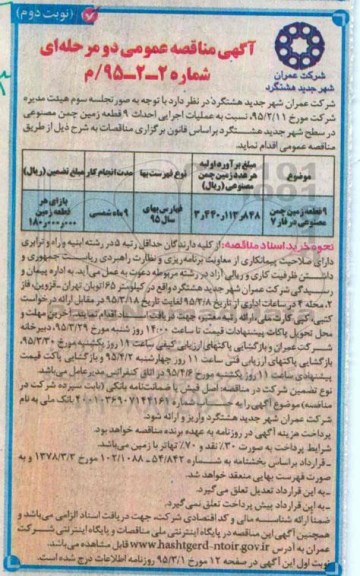 (نوبت دوم)
آگهی مناقصه عمومی دو مرحله‌ای
شماره ۲-۲-۹۵/م
شرکت عمران
شهر جدید هشتگرد
شرکت عمران شهر جدید هشتگرد در نظر دارد با توجه به صورتجلسه سوم هیئت مدیره
شرکت مورخ ۹۵/۲/۱۱، نسبت به عملیات اجرایی احداث ۹ قطعه زمین چمن مصنوعی
در سطح شهر جدید هشتگرد براساس قانون برگزاری مناقصات به شرح ذیل از طریق
مناقصه عمومی اقدام نماید.
موضوع
مبلغ برآورد اولیه هر عدد زمین چمن مصنوعی (ریال)
نوع فهرست بها
مدت انجام کار
مبلغ تضمین (ریال)
۹ قطعه زمین چمن مصنوعی در فاز ۷
۳,۴۴۰,۱۱۳,۸۴۸
فهارس بهای سال ۹۵
۹ ماه شمسی
بازای هر قطعه زمین ۱۸۰,۰۰۰,۰۰۰
نحوه خرید اسناد مناقصه: از کلیه دارندگان حداقل رتبه ۵ در رشته ابنیه و راه و ترابری
دارای صلاحیت پیمانکاری از معاونت برنامه ریزی و نظارت راهبردی ریاست جمهوری و
داشتن ظرفیت کاری و ریالی آزاد در رشته مربوطه دعوت به عمل می‌آید. به اداره پیمان و
رسیدگی شرکت عمران شهر جدید هشتگرد واقع در کیلومتر ۶۵ اتوبان تهران ـ قزوین، فاز
۲، محله ۴ در ساعات اداری از تاریخ ۹۵/۳/۸ لغایت تاریخ ۹۵/۳/۱۸ در مقابل ارائه درخواست
کتبی، کپی کارت ملی ارائه کننده معتبر، جهت دریافت اسناد اقدام نمایند. آخرین مهلت و
محل تحویل پاکات پیشنهادات قیمت تا ساعت ۱۴:۰۰ روز شنبه مورخ ۹۵/۳/۲۹، دبیرخانه
شرکت عمران و بازگشایی پاکتهای ارزیابی کیفی ساعت ۱۱ روز یکشنبه مورخ ۹۵/۳/۳۰،
بازگشایی پاکتهای ارزیابی فنی ساعت ۱۱ روز چهارشنبه ۹۵/۴/۲ و بازگشایی پاکت قیمت
پیشنهادی ساعت ۱۱ روز یکشنبه مورخ ۹۵/۴/۶ در اتاق کنفرانس مدیرعامل می‌باشد.
نوع تضمین شرکت در مناقصه: اصل فیش یا ضمانتنامه بانکی (بابت سپرده شرکت در
مناقصه) موضوع آگهی را به حساب شماره ۴۰۰۱۰۳۶۹۰۷۱۴۴۱۶۱ بانک ملی به نام
شرکت عمران شهر جدید هشتگرد واریز و ارائه شود.
پرداخت هزینه آگهی در روزنامه به عهده برنده مناقصه خواهد بود.
شرایط پرداخت به صورت ۳۰٪ نقد و ۷۰٪ تهاتر با زمین می‌باشد.
ـ قرارداد براساس بخشنامه به شماره ۵۴/۸۴۲ ـ ۱۰۲/۱۰۸۸ مورخ ۱۳۷۸/۳/۳ و به
صورت فهرست بهایی منعقد خواهد شد.
ـ به این قرارداد تعدیل تعلق می‌گیرد.
ـ به این قرارداد پیش پرداخت تعلق نمی‌گیرد.
ضمنا ارائه شناسه ملی و کد اقتصادی شرکت، جهت دریافت اسناد الزامی می‌باشد و
همچنین آگهی این مناقصه در پایگاه اینترنتی ملی مناقصات و پایگاه اینترنتی شرکت
عمران به آدرس www.hashtgerd-ntoir.gov.ir قابل مشاهده می‌باشد.
نوبت اول این آگهی در صفحه ۱۲ مورخ ۹۵/۳/۱ روزنامه اطلاعات درج شده است.